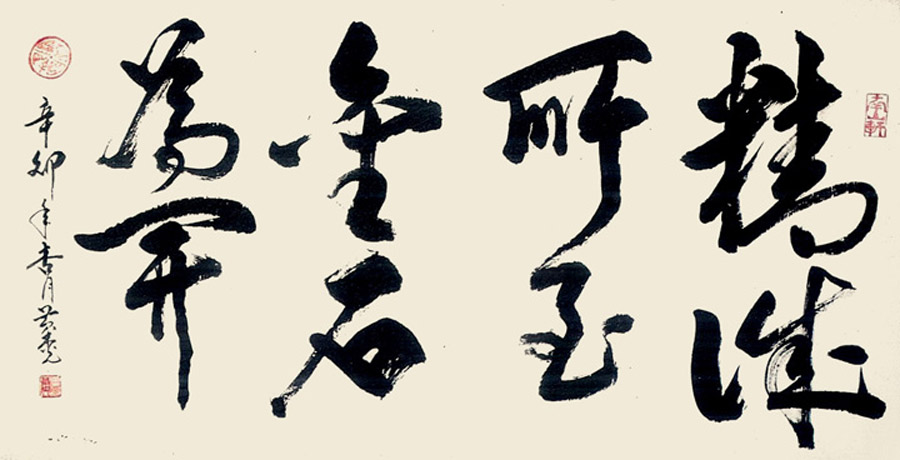 精诚
所至
金石
为开
辛卯年杏月